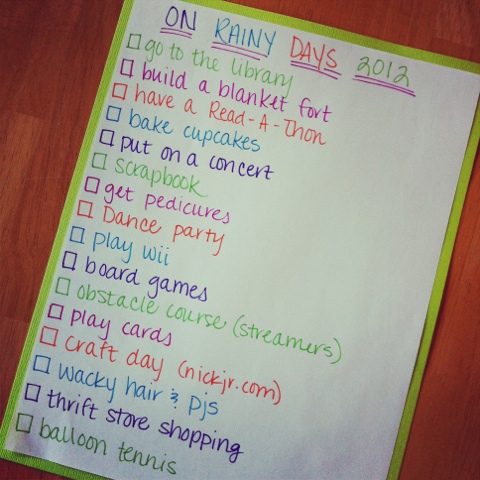 ON RAINY DAYS 2012
go to the library
build a blanket fort
have a Read-A-Thon
bake cupcakes
put on a concert
scrapbook
get pedicures
Dance party
play wii
board games
obstacle course (streamers)
play cards
craft day (nickjr.com)
wacky hair & pjs
thrift store shopping
balloon tennis